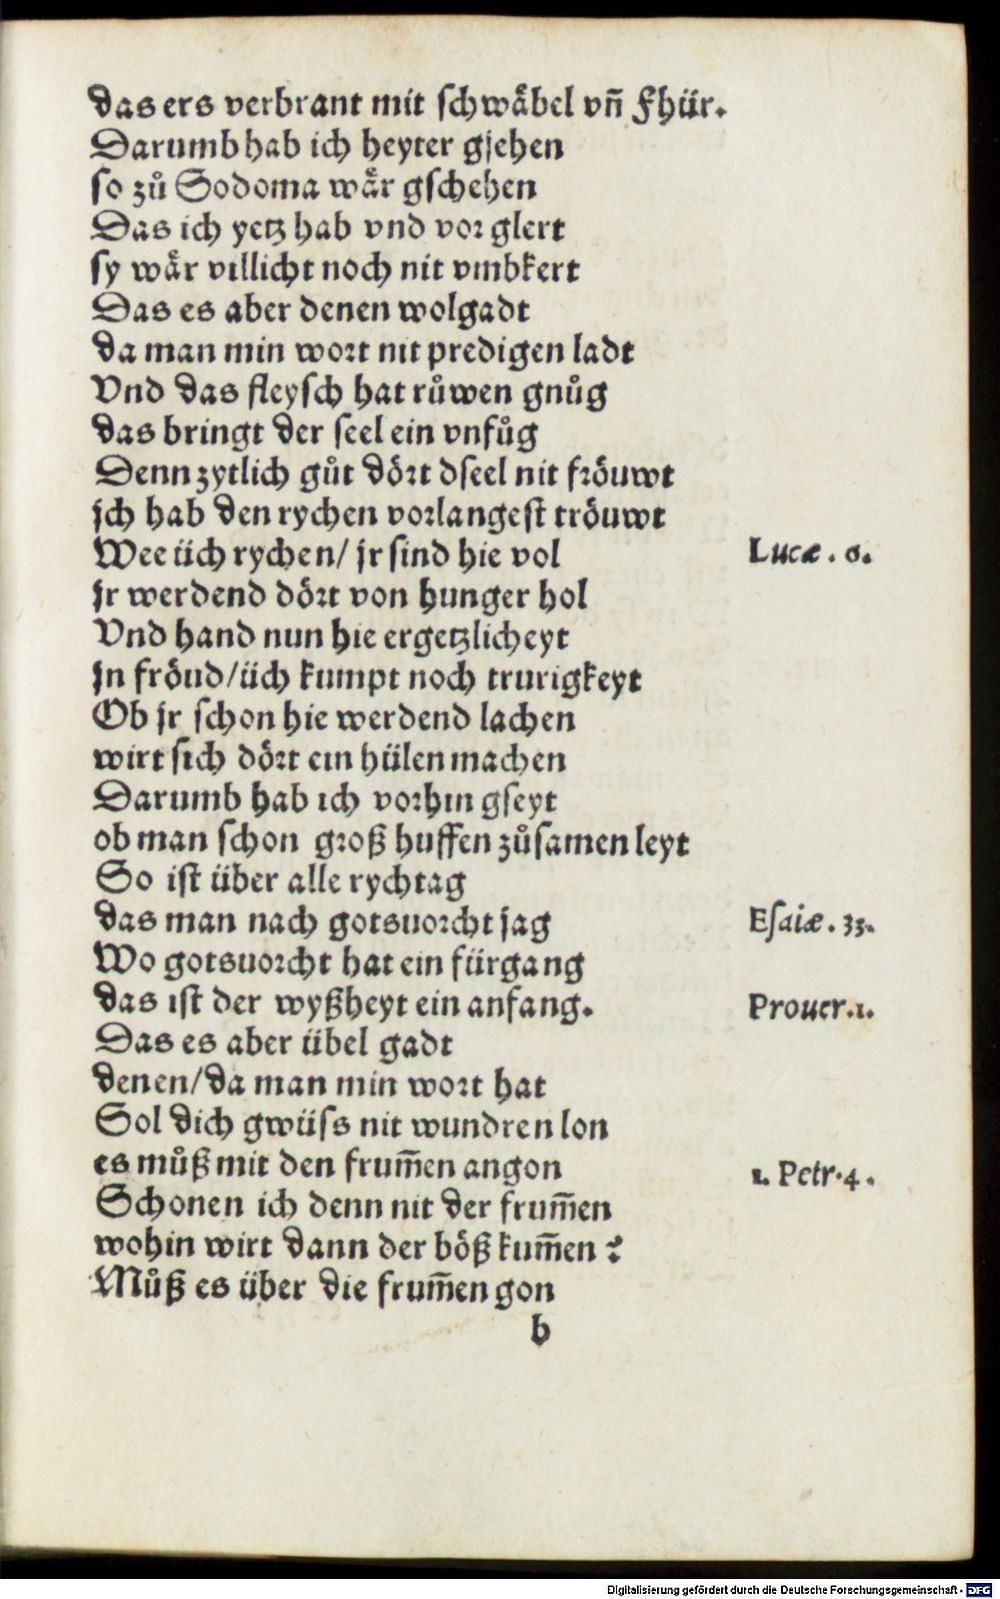 das ers verbrant mit schwaͤbel vñ Fhür.
Darumb hab ich heyter gsehen
so zuͦ Sodoma waͤr gschehen
Das ich yetz hab vnd vor glert
sy waͤr villicht noch nit vmbkert
Das es aber denen wolgadt
da man min wort nit predigen ladt
Vnd das fleysch hat ruͦwen gnuͦg
das bringt der seel ein vnfuͦg
Denn zytlich guͦt doͤrt dseel nit froͤuwt
ich hab den rychen vorlangest troͤuwt
Wee üch rychen/ jr sind hie vol Lucæ. 6.
jr werdend doͤrt von hunger hol
Vnd hand nun hie ergetzlicheyt
jn froͤud/üch kumpt noch trurigkeyt
Ob jr schon hie werdend lachen
wirt sich doͤrt ein hülen machen
Darumb hab ich vorhin gseyt
ob man schon groß huffen zuͦsamen leyt
So ist über alle rychtag
das man nach gotsuorcht jag Esaiæ. 33.
Wo gotsuorcht hat ein fürgang
das ist der wyßheyt ein anfang. Prouer.1.
Das es aber übel gadt
denen/da man min wort hat
Sol dich gwüss nit wundren lon
es muͦß mit den frum̄en angon 1. Petr.4.
Schonen ich denn nit der frum̄en
wohin wirt dann der boͤß kum̄en?
Muͦß es über die frum̄en gon
b
Digitalisierung gefördert durch die Deutsche Forschungsgemeinschaft - DFG